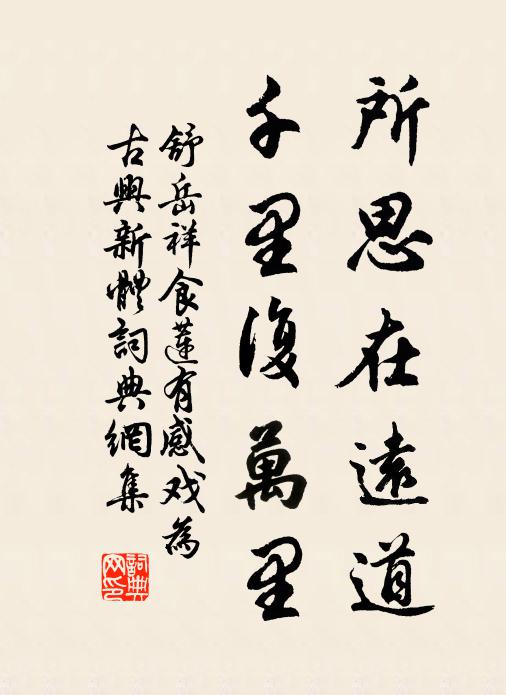 所思在遠道
千里復萬里
舒岳祥食蓮有感戏為
古興新體詞典網集
詞典
网印